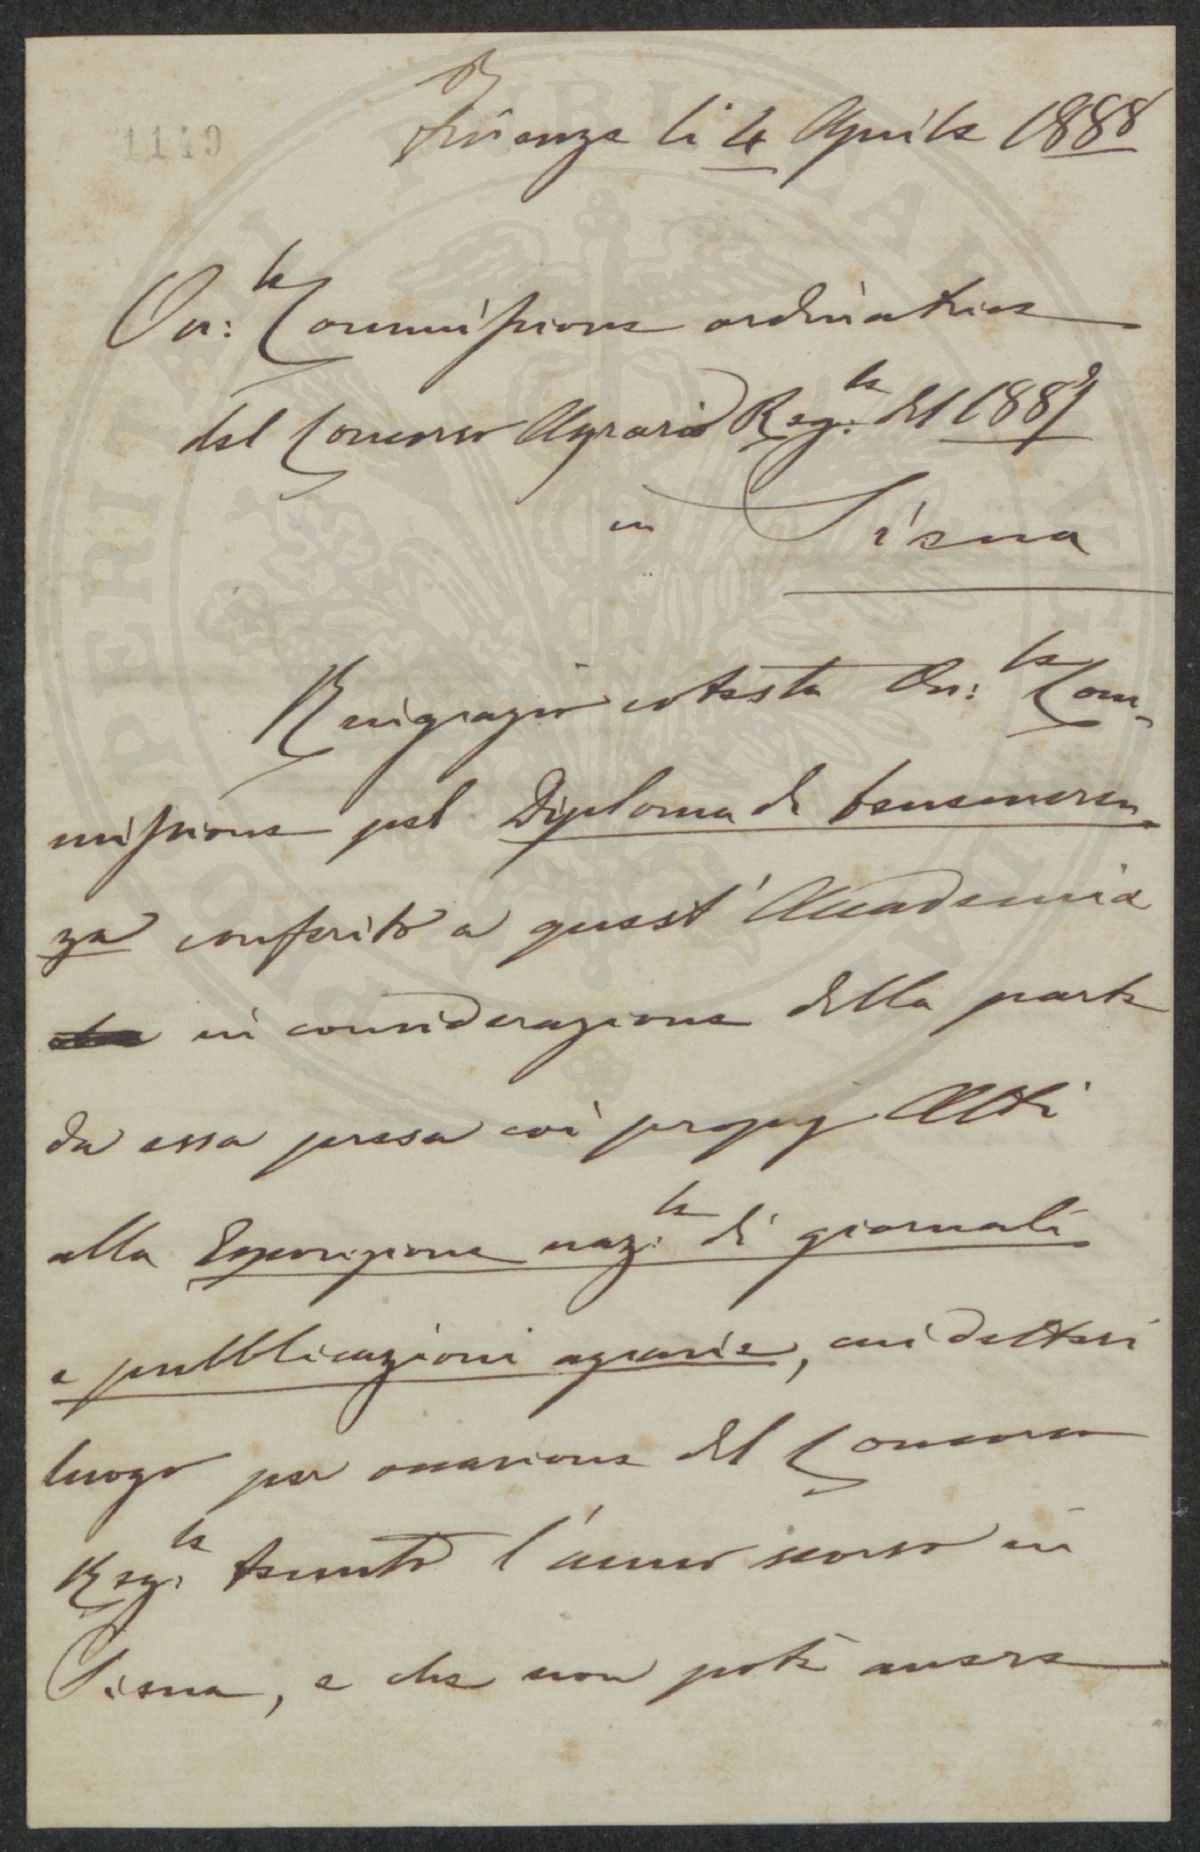 1149
Firenze li 4 Aprile 1888
On:le Commissione ordinatrice
del Concorso Agrario Reg:le del 1887
in Siena
Ringrazio cotesta On:le Com-
missione pel Diploma di benemeren-
za conferito a quest'Accademia
in considerazione della parte
da essa presa coi proprj Atti
alla Esposizione naz:le di giornali
e pubblicazioni agrarie, cui dettesi
luogo per occasione del Concorso
Reg:le tenuto l'anno scorso in
Siena, e che non potè avere